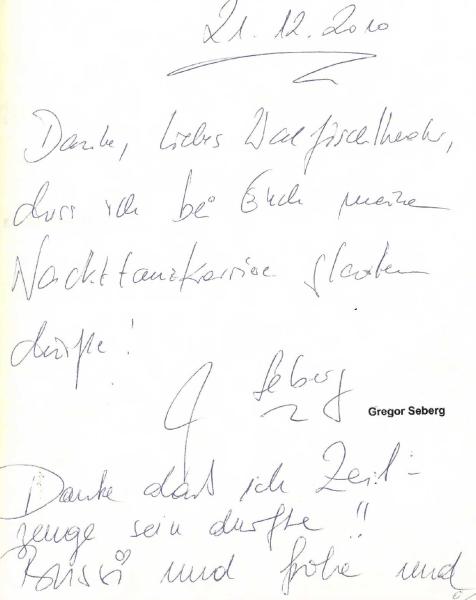 21.12.2010
Danke, liebes Walfischtheater,
dass ich bei Euch meine
Nackttanzkarriere starten
durfte!
G Seberg
Gregor Seberg
Danke dass ich Zeit-
zeuge sein durfte!!
Bussi und frohe und